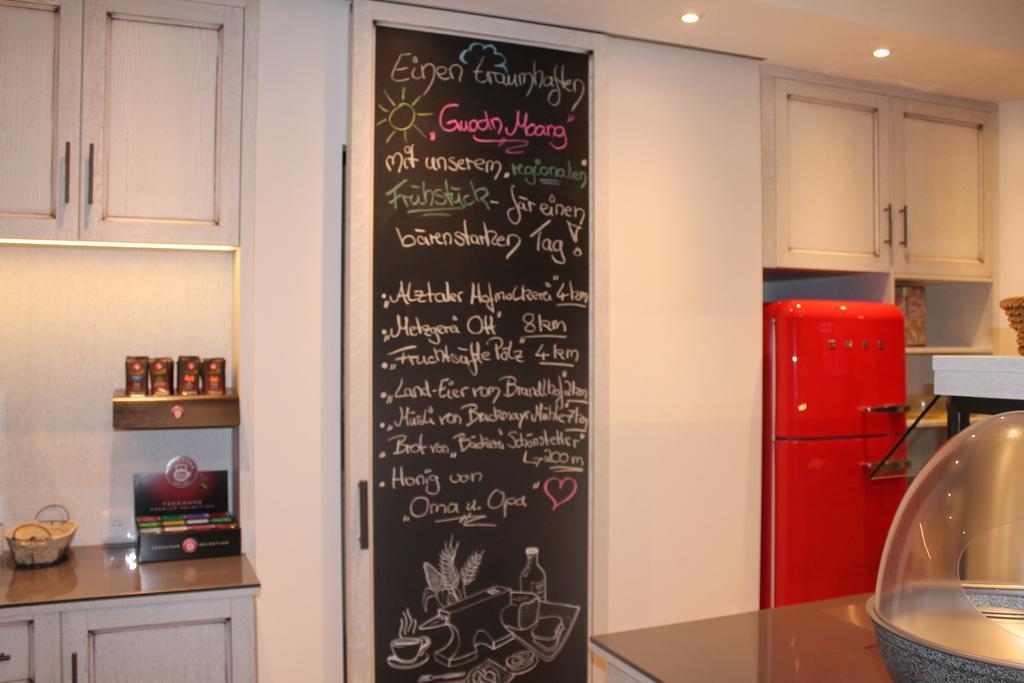 Einen traumhaften
„Guadn Moang"
mit unserem „regionalen"
Frühstück - für einen
bärenstarken Tag!
„Alztaler Hofmolkerei" 4 km
„Metzgerei Ott" 8 km
„Fruchtsäfte Pölz" 4 km
„Land-Eier vom Brandlhof" 2 km
„Müsli von Bruckmayr Mühle" 7 km
Brot von „Bäckerei Schönstetter"
↳ 200 m
Honig von
„Oma u. Opa"
SMEG
TEEKANNE
PREMIUM SELECTION
TEEKANNE SELECTION